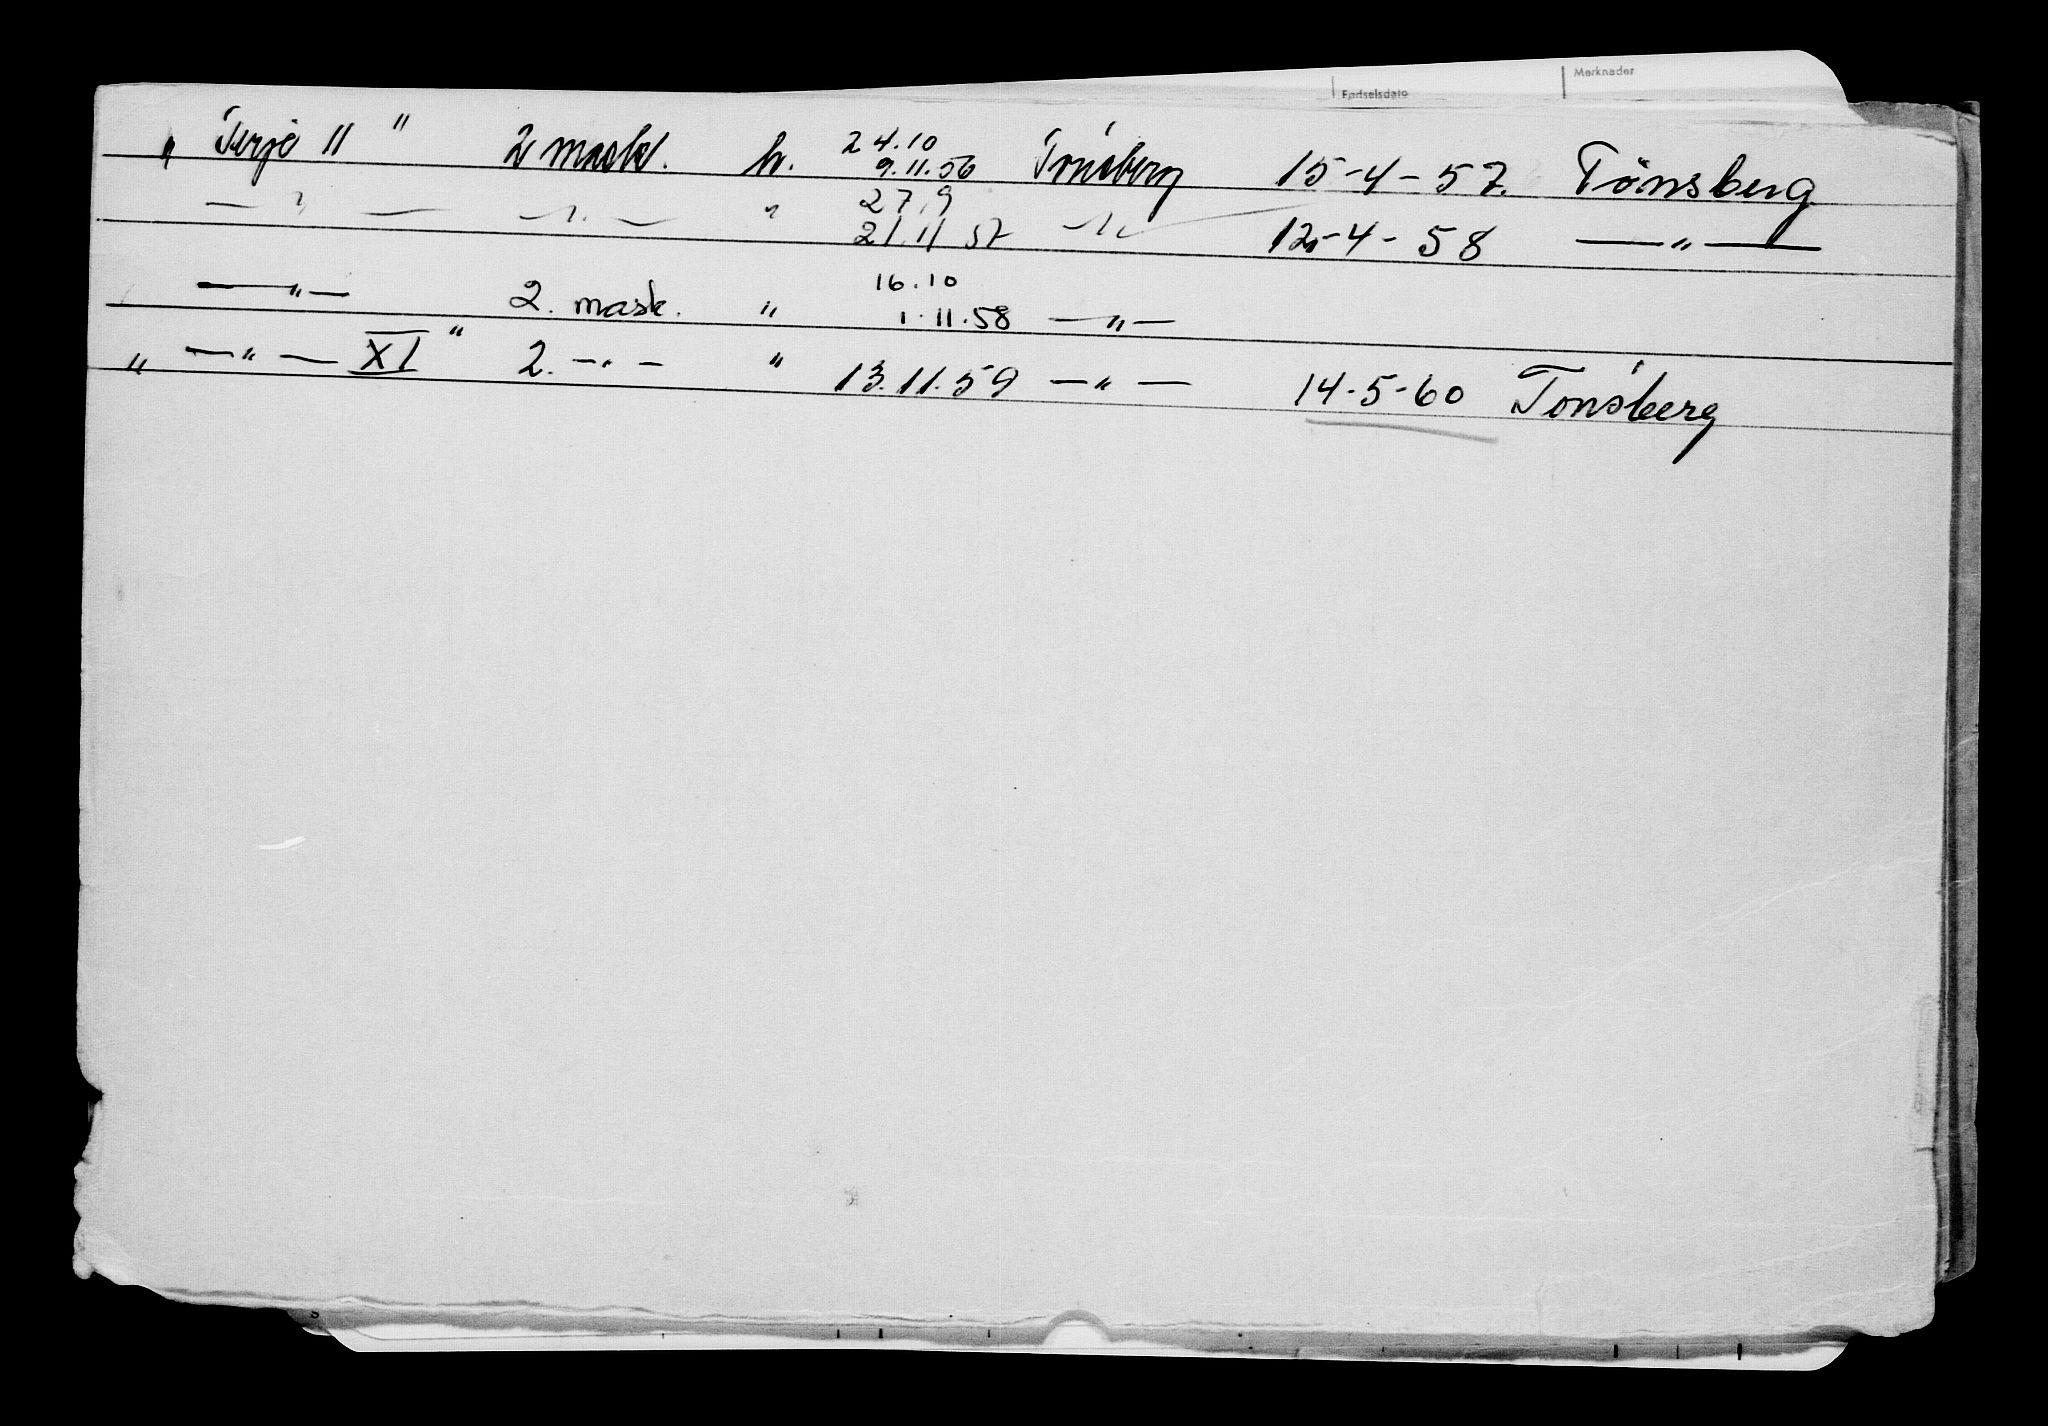 Merknader
Fødselsdato
" Terje 11 " 2 maskl. h. 24.10 9.11.56 Tønsberg 15-4-57. Tönsberg
— " — — " — " 27.9 21.11 57 — " — 12-4-58 — " —
— " — 2. mask. " 16.10 1.11.58 — " —
" — " — XI " 2. — " — " 13.11.59 — " — 14-5-60 Tønsberg